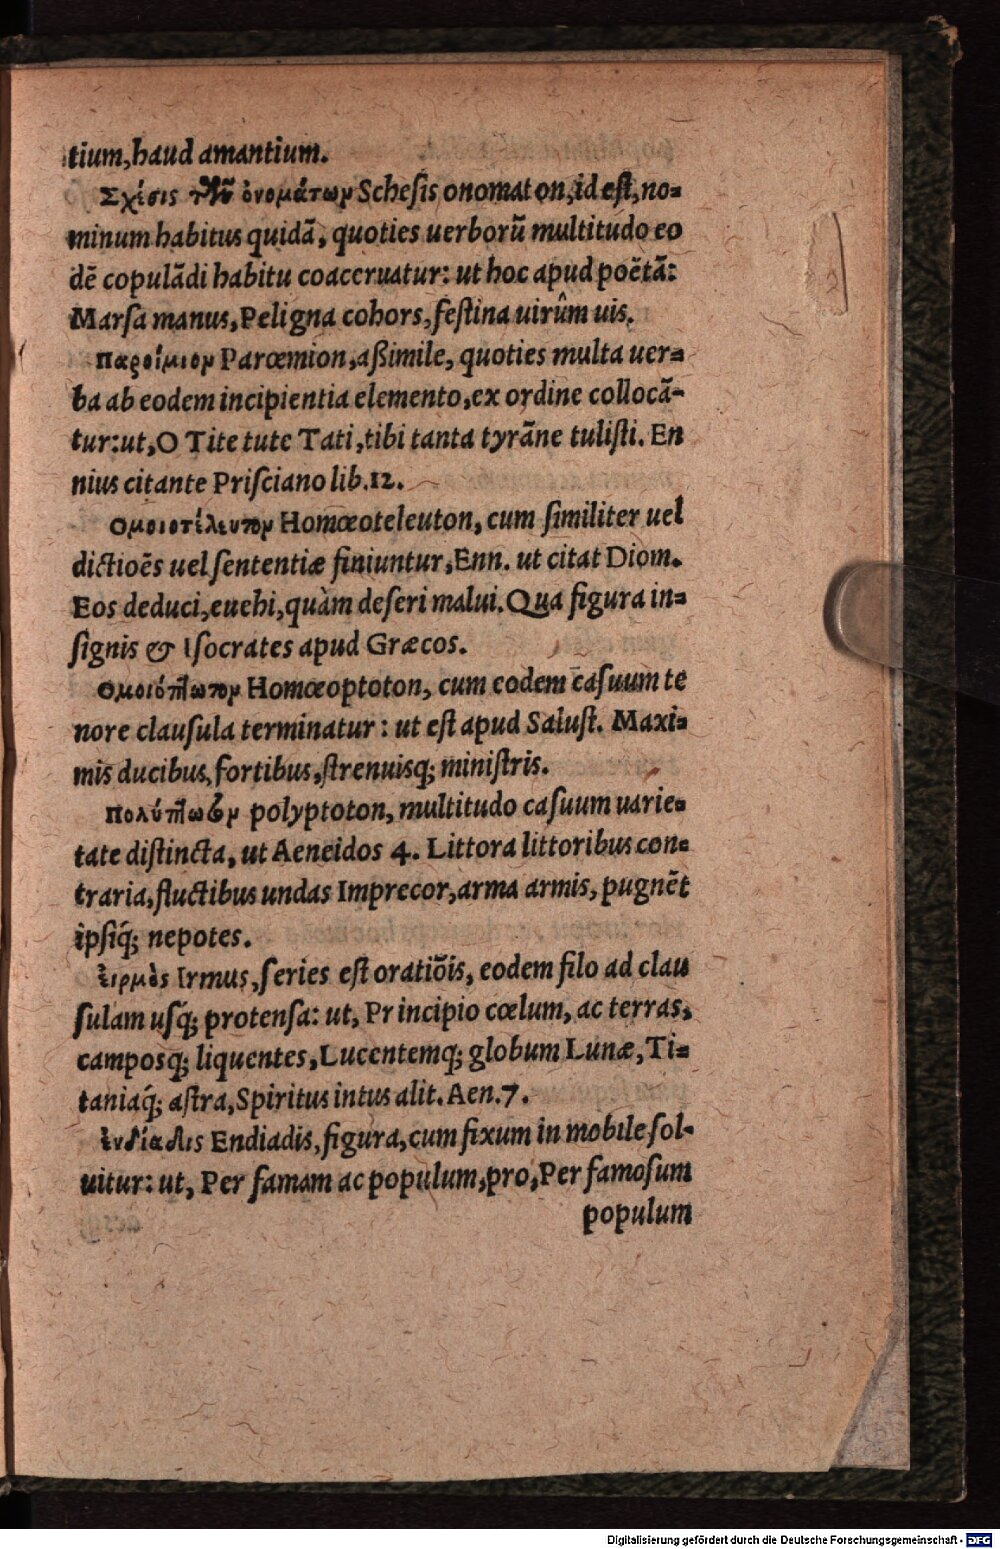 tium, haud amantium.
Σχέσις τῶν ὀνομάτων Scheſis onomaton, id eſt, no-
minum habitus quidã, quoties uerborũ multitudo eo
dẽ copulãdi habitu coaceruatur: ut hoc apud poëtã:
Marſa manus, Peligna cohors, feſtina uirûm uis.
Παροίμιον Parœmion, aßimile, quoties multa uer-
ba ab eodem incipientia elemento, ex ordine collocã-
tur: ut, O Tite tute Tati, tibi tanta tyrãne tuliſti. En
nius citante Priſciano lib. 12.
Ομοιοτέλευτον Homœoteleuton, cum ſimiliter uel
dictiões uel ſententiæ finiuntur, Enn. ut citat Diom.
Eos deduci, euehi, quàm deſeri malui. Qua figura in-
ſignis & Iſocrates apud Græcos.
Ομοιόπτωτον Homœoptoton, cum eodem caſuum te
nore clauſula terminatur: ut eſt apud Saluſt. Maxi-
mis ducibus, fortibus, ſtrenuisq; miniſtris.
Πολύπτωτον polyptoton, multitudo caſuum uarie-
tate diſtincta, ut Aeneidos 4. Littora littoribus con-
traria, fluctibus undas Imprecor, arma armis, pugnẽt
ipſiq́; nepotes.
ἑιρμὸς Irmus, ſeries eſt oratiõis, eodem filo ad clau
ſulam uſq́; protenſa: ut, Principio cœlum, ac terras,
camposq́; liquentes, Lucentemq́; globum Lunæ, Ti-
taniaq́; aſtra, Spiritus intus alit. Aen. 7.
ἑνδίαδις Endiadis, figura, cum fixum in mobile ſol-
uitur: ut, Per famam ac populum, pro, Per famoſum
populum
Digitalisierung gefördert durch die Deutsche Forschungsgemeinschaft - DFG